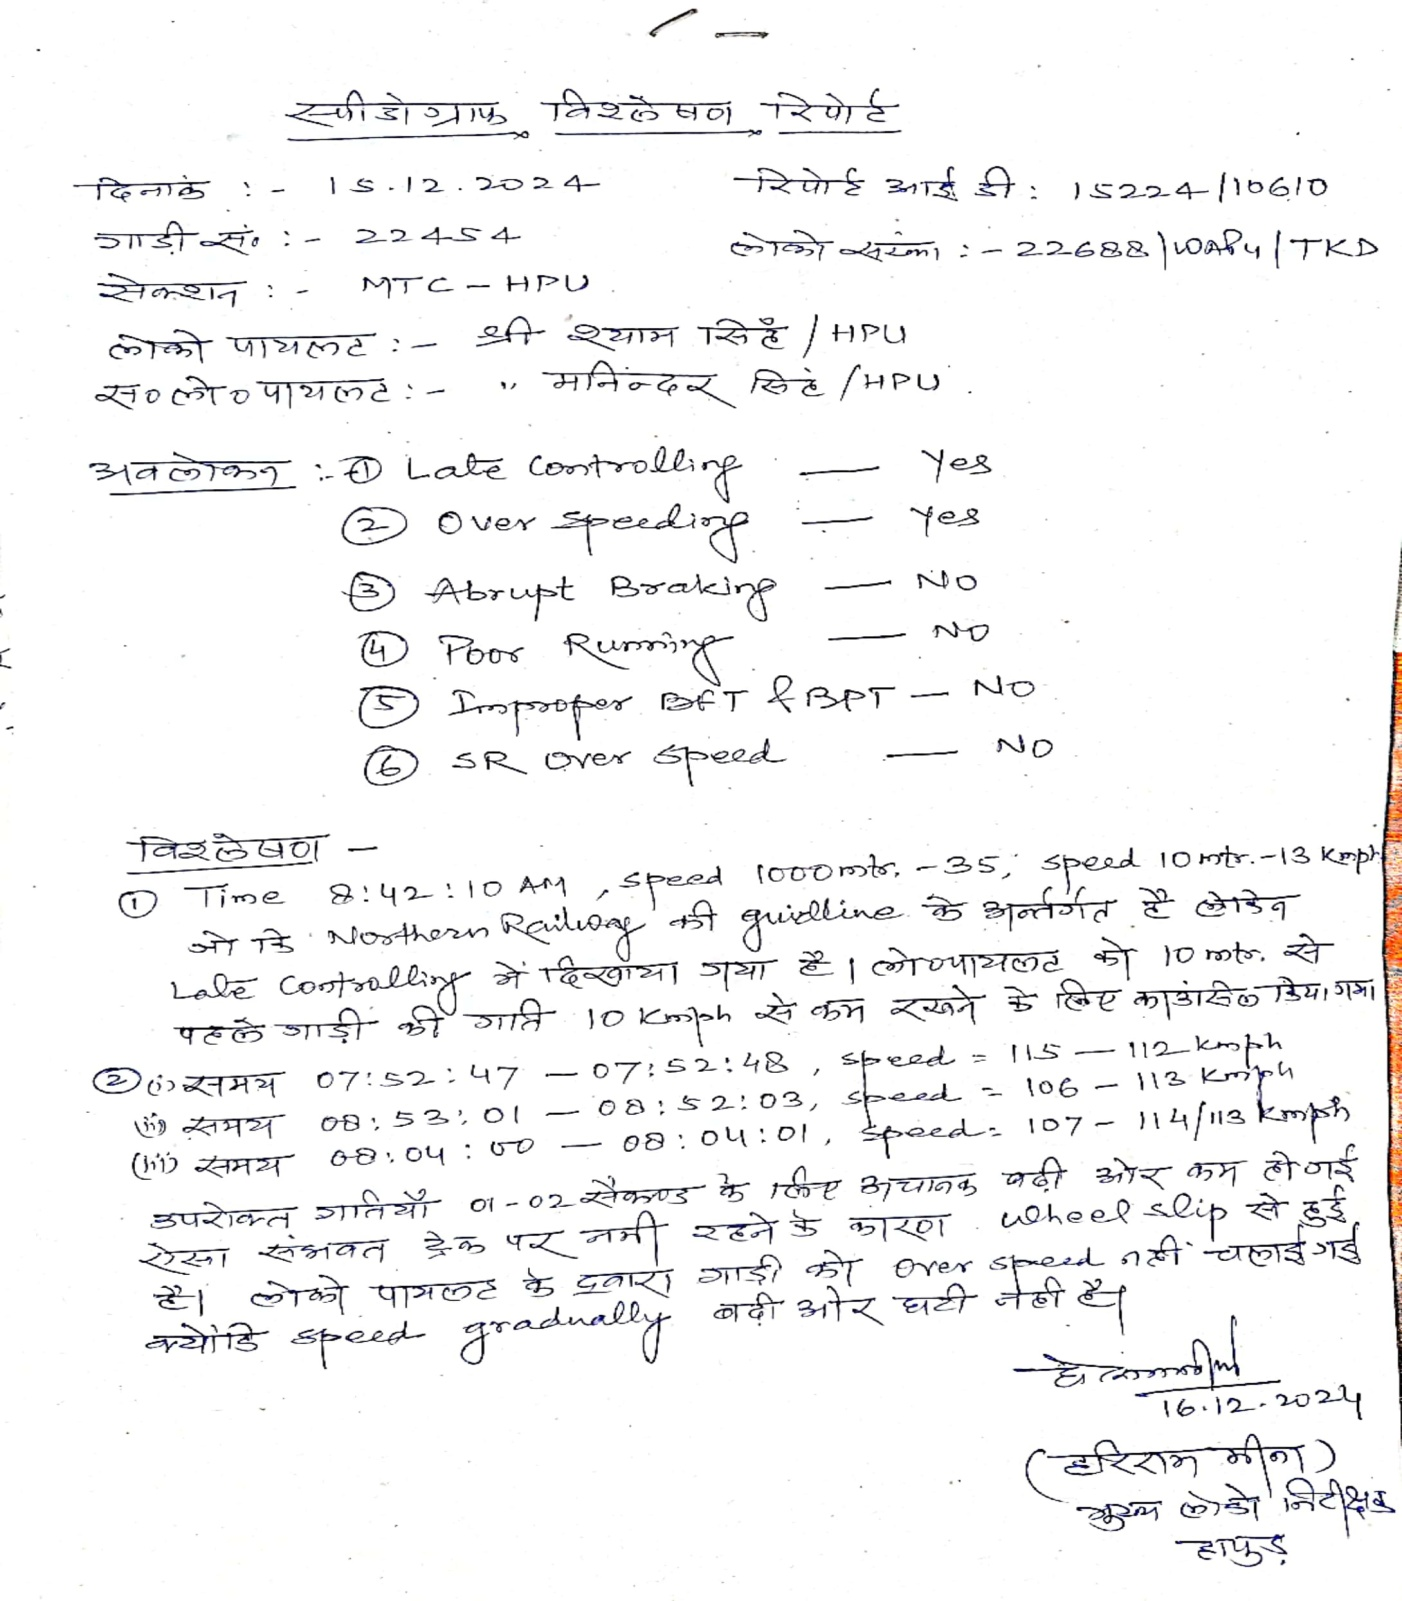 स्पीडोग्राफ विश्लेषण रिपोर्ट
दिनांक :- 15.12.2024 रिपोर्ट आई डी : 15224/10610
गाड़ी सं० :- 22454 लोको संख्या :- 22688/WAP4/TKD
सेक्शन :- MTC - HPU
लोको पायलट :- श्री श्याम सिहँ / HPU
स०लो०पायलट :- " मनिन्दर सिहं /HPU
अवलोकन :- ① Late Controlling — Yes
② Over speeding — Yes
③ Abrupt Braking — NO
④ Poor Running — NO
⑤ Improper BFT & BPT — NO
⑥ SR Over speed — NO
विश्लेषण -
① Time 8:42:10 AM, speed 1000mtr. - 35, speed 10 mtr. - 13 Kmph
जो कि Northern Railway की guidline के अर्न्तगत है लेकिन
Late Controlling में दिखाया गया है। लो०पायलट को 10 mtr. से
पहले गाड़ी की गति 10 Kmph से कम रखने के लिए काउंसिल किया गया
② (i) समय 07:52:47 - 07:52:48, speed = 115 - 112 kmph
(ii) समय 08:53:01 - 08:52:03, speed = 106 - 113 Kmph
(iii) समय 08:04:00 - 08:04:01, speed = 107 - 114/113 kmph
उपरोक्त गतियाँ 01-02 सैकण्ड के लिए अचानक बढ़ी और कम हो गई
ऐसा संभवत ट्रेक पर नमी रहने के कारण wheel slip से हुई
है। लोको पायलट के द्वारा गाड़ी को over speed नहीं चलाई गई
क्योंकि speed gradually बढ़ी और घटी नही है।
16.12.2024
(हरिराम मीना)
मुख्य लोको निरीक्षक
हापुड़